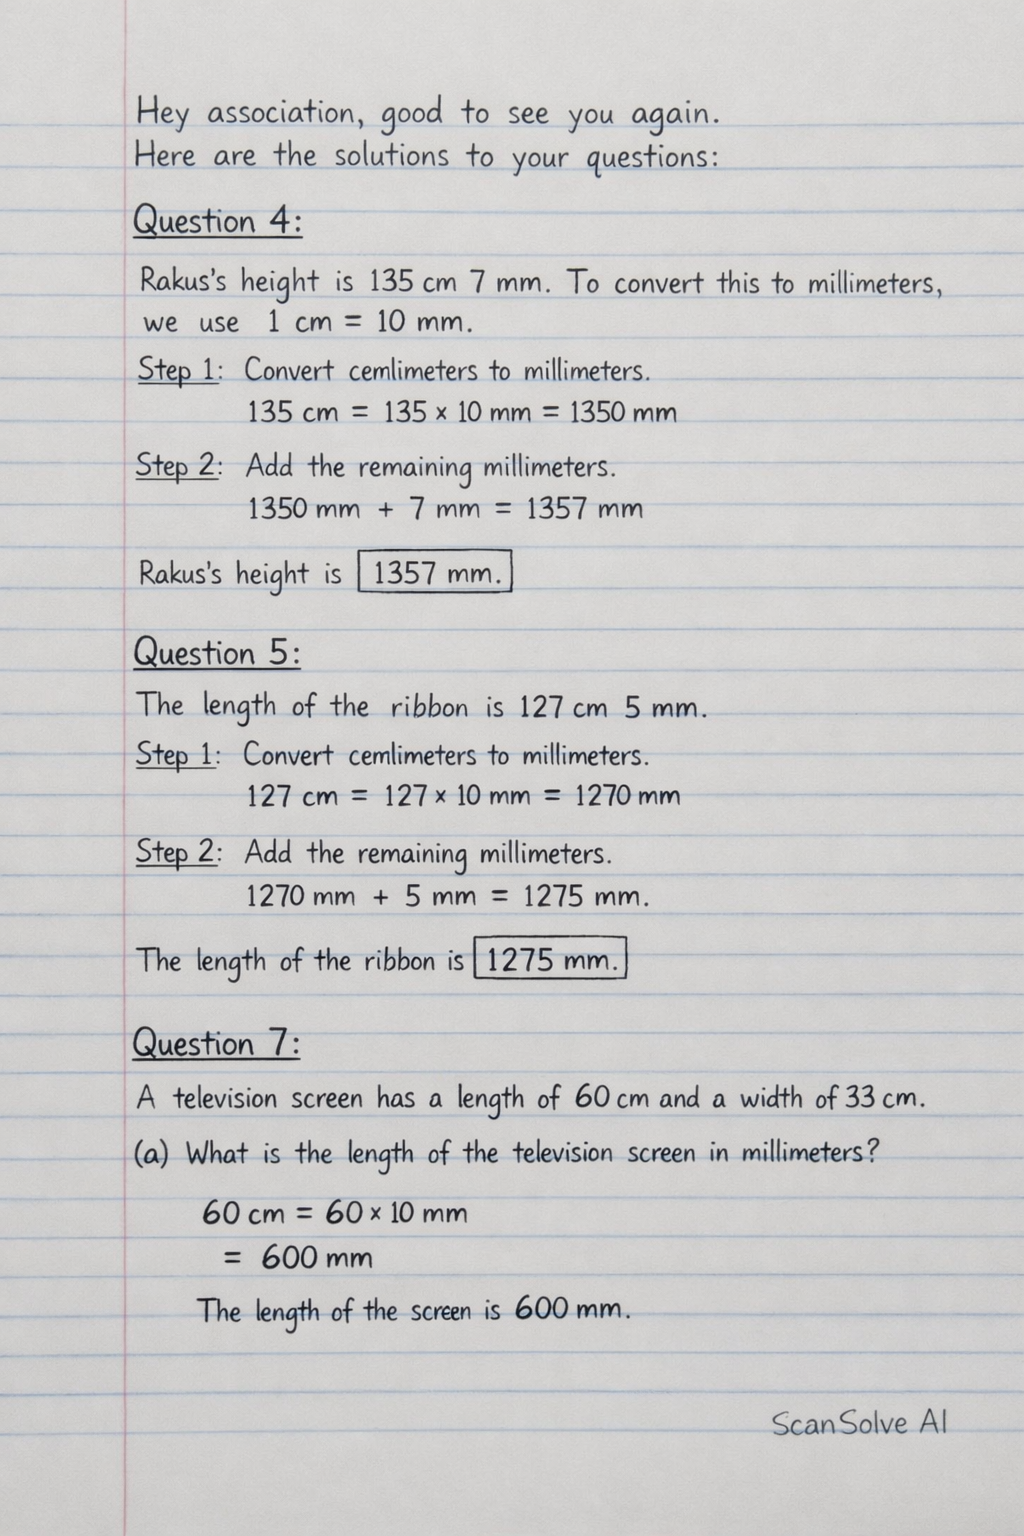 Hey association, good to see you again.
Here are the solutions to your questions:
Question 4:
Rakus's height is 135 cm 7 mm. To convert this to millimeters,
we use 1 cm = 10 mm.
Step 1: Convert cemlimeters to millimeters.
135 cm = 135 × 10 mm = 1350 mm
Step 2: Add the remaining millimeters.
1350 mm + 7 mm = 1357 mm
Rakus's height is 1357 mm.
Question 5:
The length of the ribbon is 127 cm 5 mm.
Step 1: Convert cemlimeters to millimeters.
127 cm = 127 × 10 mm = 1270 mm
Step 2: Add the remaining millimeters.
1270 mm + 5 mm = 1275 mm.
The length of the ribbon is 1275 mm.
Question 7:
A television screen has a length of 60 cm and a width of 33 cm.
(a) What is the length of the television screen in millimeters?
60 cm = 60 × 10 mm
= 600 mm
The length of the screen is 600 mm.
ScanSolve AI